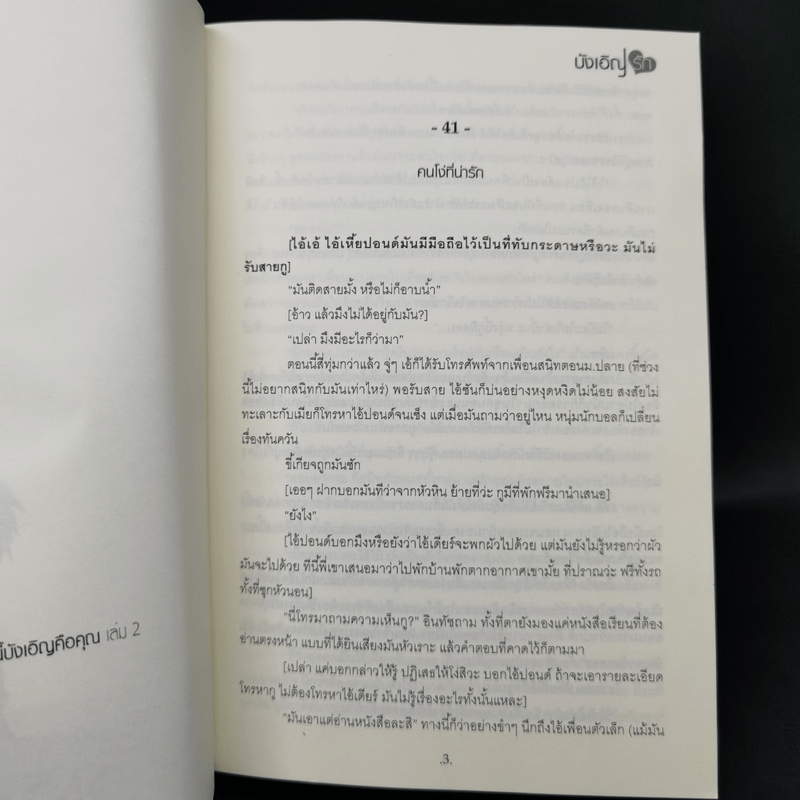 บังเอิญรัก
- 41 -
คนโง่ที่น่ารัก
[ไอ้เอ้ ไอ้เหี้ยปอนด์มันมีมือถือไว้เป็นที่ทับกระดาษหรือวะ มันไม่
รับสายกู]
“มันติดสายมั้ง หรือไม่ก็อาบน้ำ”
[อ้าว แล้วมึงไม่ได้อยู่กับมัน?]
“เปล่า มึงมีอะไรก็ว่ามา”
ตอนนี้สี่ทุ่มกว่าแล้ว จู่ๆ เอ้ก็ได้รับโทรศัพท์จากเพื่อนสนิทตอนม.ปลาย (ที่ช่วง
นี้ไม่อยากสนิทกับมันเท่าไหร่) พอรับสาย ไอ้ซันก็บ่นอย่างหงุดหงิดไม่น้อย สงสัยไม่
ทะเลาะกับเมียก็โทรหาไอ้ปอนด์จนเซ็ง แต่เมื่อมันถามว่าอยู่ไหน หนุ่มนักบอลก็เปลี่ยน
เรื่องทันควัน
ขี้เกียจถูกมันซัก
[เออๆ ฝากบอกมันทีว่าจากหัวหิน ย้ายที่ว่ะ กูมีที่พักฟรีมานำเสนอ]
“ยังไง”
[ไอ้ปอนด์บอกมึงหรือยังว่าไอ้เดียร์จะพกผัวไปด้วย แต่มันยังไม่รู้หรอกว่าผัว
มันจะไปด้วย ทีนี้พี่เขาเสนอมาว่าไปพักบ้านพักตากอากาศเขามั้ย ที่ปราณว่ะ ฟรีทั้งรถ
ทั้งที่ซุกหัวนอน]
“นี่โทรมาถามความเห็นกู?” อินทัชถาม ทั้งที่ตายังมองแค่หนังสือเรียนที่ต้อง
อ่านตรงหน้า แบบที่ได้ยินเสียงมันหัวเราะ แล้วคำตอบที่คาดไว้ก็ตามมา
[เปล่า แค่บอกกล่าวให้รู้ ปฏิเสธให้โง่สิวะ บอกไอ้ปอนด์ ถ้าจะเอารายละเอียด
โทรหากู ไม่ต้องโทรหาไอ้เดียร์ มันไม่รู้เรื่องอะไรทั้งนั้นแหละ]
“มันเอาแต่อ่านหนังสือละสิ” ทางนี้ก็ว่าอย่างขำๆ นึกถึงไอ้เพื่อนตัวเล็ก (แม้มัน
.3.
บังเอิญคือคุณ เล่ม 2